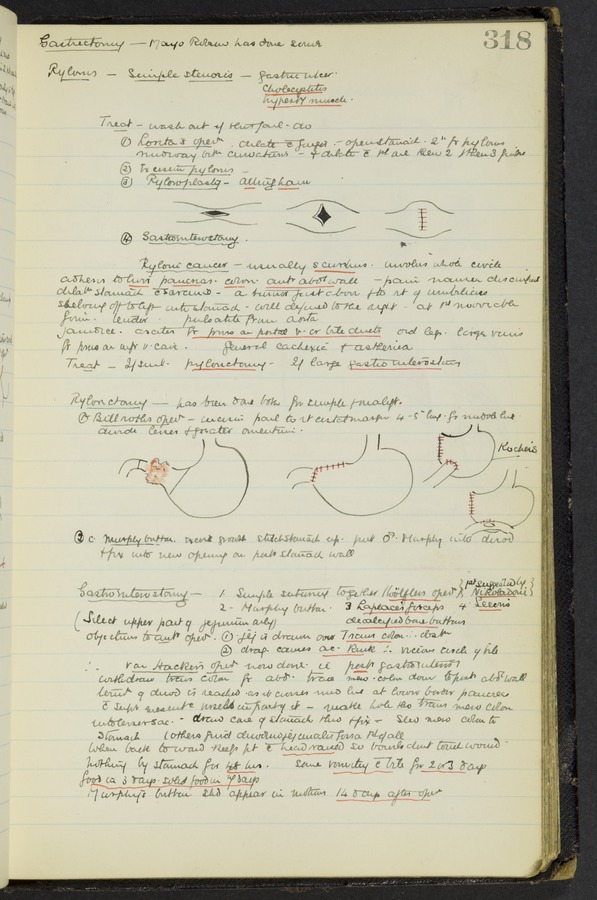 318
Gastrectomy — Mayo Robson has done some
Pylorus — Simple stenosis — gastric ulcer.
Cholecystitis
hyperty muscle.
Treat — wash out if this fail. do
① Loreta's oper. dilate c finger. - open stomach. 2" fr pylorus
midway betn curvatures — & dilate c 1st one then 2 then 3 fingers
② Excision pylorus —
③ Pyloroplasty —
④ Gastroenterostomy.
Pyloric cancer — usually scirrhus. involves whole circle
adhesns to liver pancreas. colon. ant abdl wall — pain nausea discomfort
dilatn stomach c sarcinae. a tumour just above & to rt of umbilicus
shelving off to left into stomach. well defined to the right. at 1st moveable
firm. tender. pulsatile from aorta
jaundice. ascites fr press on portal v. or bile ducts oed legs. large veins
fr press on inf v. cava. General cachexia & asthenia
Treat — If small. pylorectomy. If large gastroenterostomy
Pylorectomy — has been done both for simple & malig.
① Billroths oper — incision parl to rt costal margin 4-5" long. fr middle line
divide lesser & greater omentum.
Kocher's
② c Murphy button. excise growth stitch stomach up. put ♂ Murphy into duod
& fix into new opening on post stomach wall
Gastroenterostomy — 1. Simple suturing together (Wölflers oper) {1st suggested by Nikoladoni}
2. Murphy button. 3 Laplace's forceps 4
(Select upper part of jejunum as) decalcified bone buttons
objections to ant oper. ① jej is drawn over Trans colon.
② drag causes ac. kink ∴ vicious circle of bile
∴ Von Hackers oper now done. ie post gastroenteros
withdraw trans colon fr abd. trace meso-colon down to post abdl wall
termn of duod is reached as it crosses mid line at lower border pancreas
c supr mesenteric vessels — make hole thro trans meso colon
into lesser sac. - draw coil of stomach thro & fix — Sew meso colon to
Stomach
When back to ward keep pt c head raised so bowels dont touch wound.
nothing by stomach for 48 hrs. Some vomiting c bile for 2 or 3 days
food in 3 days. solid food in 7 days
Murphy's button shd appear in motions 14 days after oper